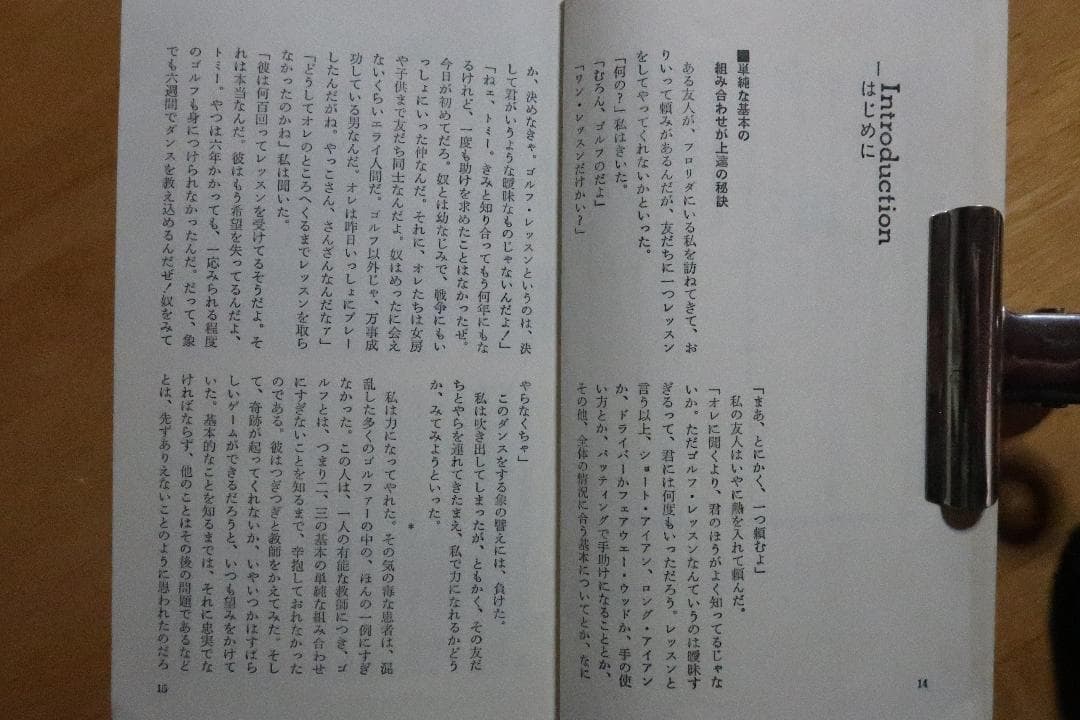 Introduction
—はじめに
■単純な基本の
組み合わせが上達の秘訣
ある友人が、フロリダにいる私を訪ねてきて、お
りいって頼みがあるんだが、友だちに一つレッスン
をしてやってくれないかといった。
「何の?」私はきいた。
「むろん、ゴルフのだよ」
「ワン・レッスンだけかい?」
「まあ、とにかく、一つ頼むよ」
私の友人はいやに熱を入れて頼んだ。
「オレに聞くより、君のほうがよく知ってるじゃな
いか。ただゴルフ・レッスンなんていうのは曖昧す
ぎるって、君には何度もいっただろう。レッスンと
言う以上、ショート・アイアン、ロング・アイアン
か、ドライバーかフェアウエー・ウッドか、手の使
い方とか、パッティングで手助けになることとか、
その他、全体の情況に合う基本についてとか、なに
14
か、決めなきゃ。ゴルフ・レッスンというのは、決
して君がいうような曖昧なものじゃないんだよ!」
「ねェ、トミー。きみと知り合ってもう何年にもな
るけれど、一度も助けを求めたことはなかったぜ。
今日が初めてだろ。奴とは幼なじみで、戦争にもい
っしょにいった仲なんだ。それに、オレたちは女房
や子供まで友だち同士なんだよ。奴はめったに会え
ないくらいエライ人間だ。ゴルフ以外じゃ、万事成
功している男なんだ。オレは昨日いっしょにプレー
したんだがね。やっこさん、さんざんなんだなァ」
「どうしてオレのところへくるまでレッスンを取ら
なかったのかね」私は聞いた。
「彼は何百回ってレッスンを受けてるそうだよ。そ
れは本当なんだ。彼はもう希望を失ってるんだよ、
トミー。やつは六年かかっても、一応みられる程度
のゴルフも身につけられなかったんだ。だって、象
でも六週間でダンスを教え込めるんだぜ!奴をみて
やらなくちゃ」
このダンスをする象の譬えには、負けた。
私は吹き出してしまったが、ともかく、その友だ
ちとやらを連れてきたまえ、私で力になれるかどう
か、みてみようといった。
*
私は力になってやれた。その気の毒な患者は、混
乱した多くのゴルファーの中の、ほんの一例にすぎ
なかった。この人は、一人の有能な教師につき、ゴ
ルフとは、つまり二、三の基本の単純な組み合わせ
にすぎないことを知るまで、辛抱しておれなかった
のである。彼はつぎつぎと教師をかえてみた。そし
て、奇跡が起ってくれないか、いやいつかはすばら
しいゲームができるだろうと、いつも望みをかけて
いた。基本的なことを知るまでは、それに忠実でな
ければならず、他のことはその後の問題であるなど
とは、先ずありえないことのように思われたのだろ
15